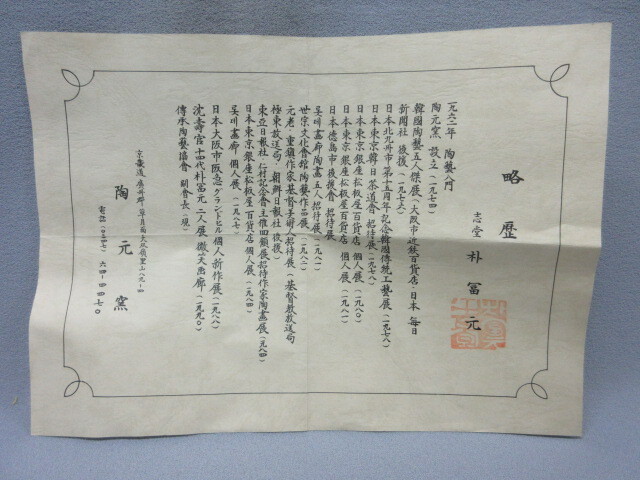 略歴
志堂 朴冨元
一九六二年 陶藝入門
陶元窯 設立(一九七四)
韓國陶藝五人傑展(大阪市近鉄百貨店・日本 毎日
新聞社 後援)(一九七六)
日本北九州市第十五周年記念韓國傳統工藝展(一九七八)
日本東京韓日茶道會 招待展(一九七八)
日本東京銀座松坂屋百貨店 個人展(一九八〇)
日本東京銀座松坂屋百貨店 個人展(一九八一)
日本德島市後援會 招待展
吳川畵廊陶畵五人招待展(一九八一)
世宗文化會館陶藝作品展(一九八二)
元老・重鎭作家基督美術人招待展(基督教放送局
極東放送局・朝鮮日報社 後援)
東亞日報社・仁村記念會主催四個展招待作家陶畵展(一九八四)
日本東京銀座松坂屋百貨店個人展(一九八四)
吳川畵廊 個人展(一九八七)
日本大阪市阪急グランドビル個人新作展(一九八八)
沈壽官十四代朴冨元 二人展 微笑画廊(一九九〇)
傳承陶藝協會 副會長(現)
京畿道廣州郡草月面大双嶺里山八九-四
陶元窯
電話(〇三四七)六四-四四七〇